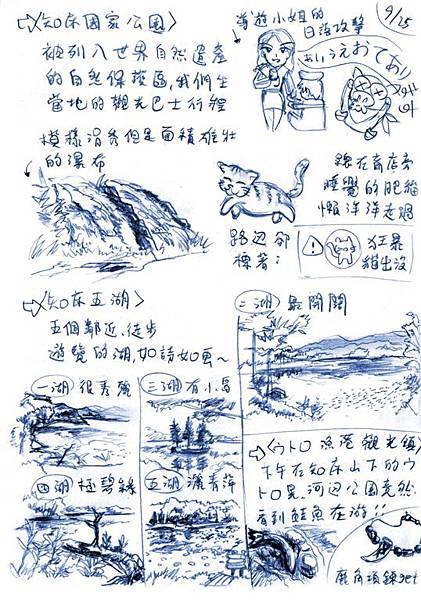 <知床國家公園>
被列入世界自然遺產
的自然保護區,我們坐
當地的觀光巴士行程
模樣清秀但是面積雄壯
的瀑布
導遊小姐的
日語攻擊
9/25
あいうえおてあり
綁在商店旁
睡覺的肥貓
懶洋洋走過
路边卻
標著:
狂暴
貓出沒
<知床五湖>
五個鄰近、徒步
遊覽的湖,如詩如画~
一湖 很秀麗
三湖 有小島
二湖 最開闊
四湖 極碧綠
五湖 漂青萍
<ウトロ 漁港 觀光鎮>
下午在知床山下的ウ
トロ見、河边公園竟然
看到鮭魚在游!!
鹿角項鍊get